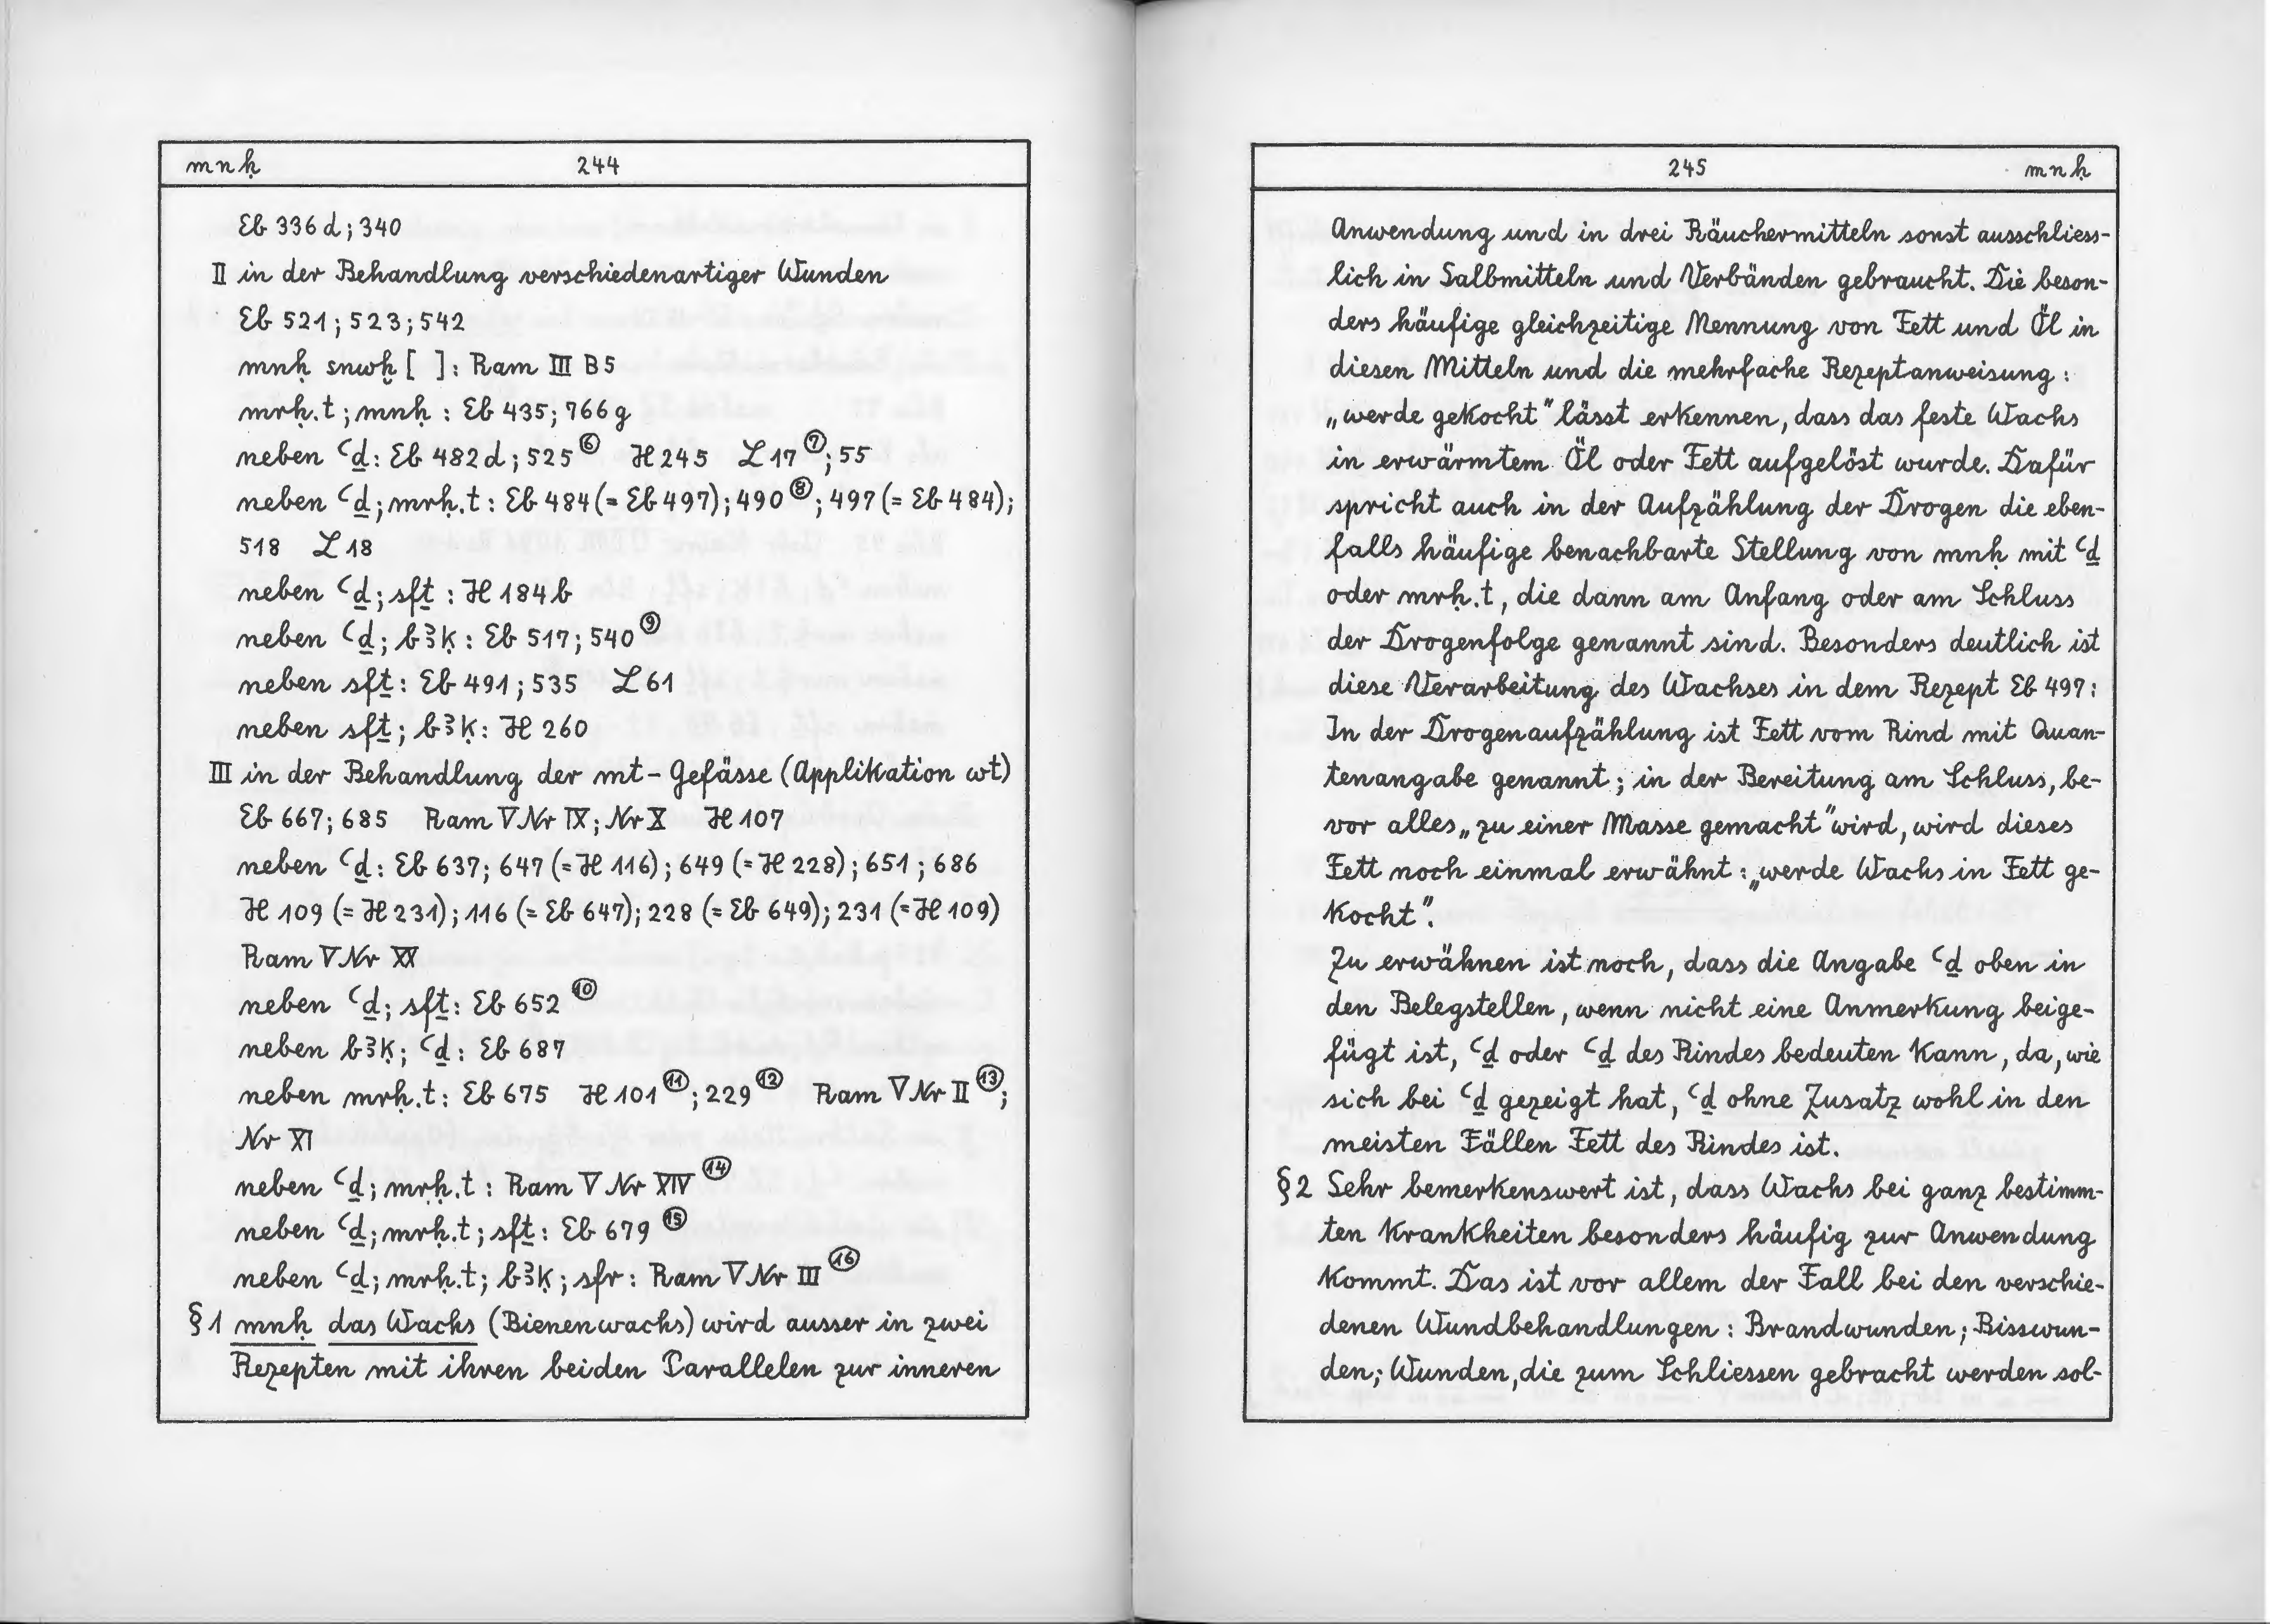 mnḥ 244
Eb 336 d; 340
II in der Behandlung verschiedenartiger Wunden
Eb 521; 523; 542
mnḥ snwḫ [ ]: Ram III B 5
mrḥ.t; mnḥ : Eb 435; 766 g
neben ꜥḏ: Eb 482 d; 525 ⑥ H 245 L 17 ⑦; 55
neben ꜥḏ; mrḥ.t: Eb 484 (= Eb 497); 490 ⑧; 497 (= Eb 484);
518 L 18
neben ꜥḏ; sfṯ : H 184 b
neben ꜥḏ; bꜣḳ: Eb 517; 540 ⑨
neben sfṯ: Eb 491; 535 L 61
neben sfṯ; bꜣḳ: H 260
III in der Behandlung der mt-Gefässe (Applikation wt)
Eb 667; 685 Ram V Nr IX; Nr X H 107
neben ꜥḏ: Eb 637; 647 (= H 116); 649 (= H 228); 651; 686
H 109 (= H 231); 116 (= Eb 647); 228 (= Eb 649); 231 (= H 109)
Ram V Nr XX
neben ꜥḏ; sfṯ: Eb 652 ⑩
neben bꜣḳ; ꜥḏ: Eb 687
neben mrḥ.t: Eb 675 H 101 ⑪; 229 ⑫ Ram V Nr II ⑬;
Nr XI
neben ꜥḏ; mrḥ.t: Ram V Nr XIV ⑭
neben ꜥḏ; mrḥ.t; sfṯ: Eb 679 ⑮
neben ꜥḏ; mrḥ.t; bꜣḳ; sfr: Ram V Nr III ⑯
§ 1 mnḥ das Wachs (Bienenwachs) wird ausser in zwei
Rezepten mit ihren beiden Parallelen zur inneren
245 mnḥ
Anwendung und in drei Räuchermitteln sonst ausschliess-
lich in Salbmitteln und Verbänden gebraucht. Die beson-
ders häufige gleichzeitige Mennung von Fett und Öl in
diesen Mitteln und die mehrfache Rezeptanweisung:
„werde gekocht" lässt erkennen, dass das feste Wachs
in erwärmtem Öl oder Fett aufgelöst wurde. Dafür
spricht auch in der Aufzählung der Drogen die eben-
falls häufige benachbarte Stellung von mnḥ mit ꜥḏ
oder mrḥ.t, die dann am Anfang oder am Schluss
der Drogenfolge genannt sind. Besonders deutlich ist
diese Verarbeitung des Wachses in dem Rezept Eb 497:
In der Drogenaufzählung ist Fett vom Rind mit Quan-
tenangabe genannt; in der Bereitung am Schluss, be-
vor alles „zu einer Masse gemacht" wird, wird dieses
Fett noch einmal erwähnt: „werde Wachs in Fett ge-
kocht".
Zu erwähnen ist noch, dass die Angabe ꜥḏ oben in
den Belegstellen, wenn nicht eine Anmerkung beige-
fügt ist, ꜥḏ oder ꜥḏ des Rindes bedeuten kann, da, wie
sich bei ꜥḏ gezeigt hat, ꜥḏ ohne Zusatz wohl in den
meisten Fällen Fett des Rindes ist.
§ 2 Sehr bemerkenswert ist, dass Wachs bei ganz bestimm-
ten Krankheiten besonders häufig zur Anwendung
kommt. Das ist vor allem der Fall bei den verschie-
denen Wundbehandlungen: Brandwunden; Bisswun-
den; Wunden, die zum Schliessen gebracht werden sol-